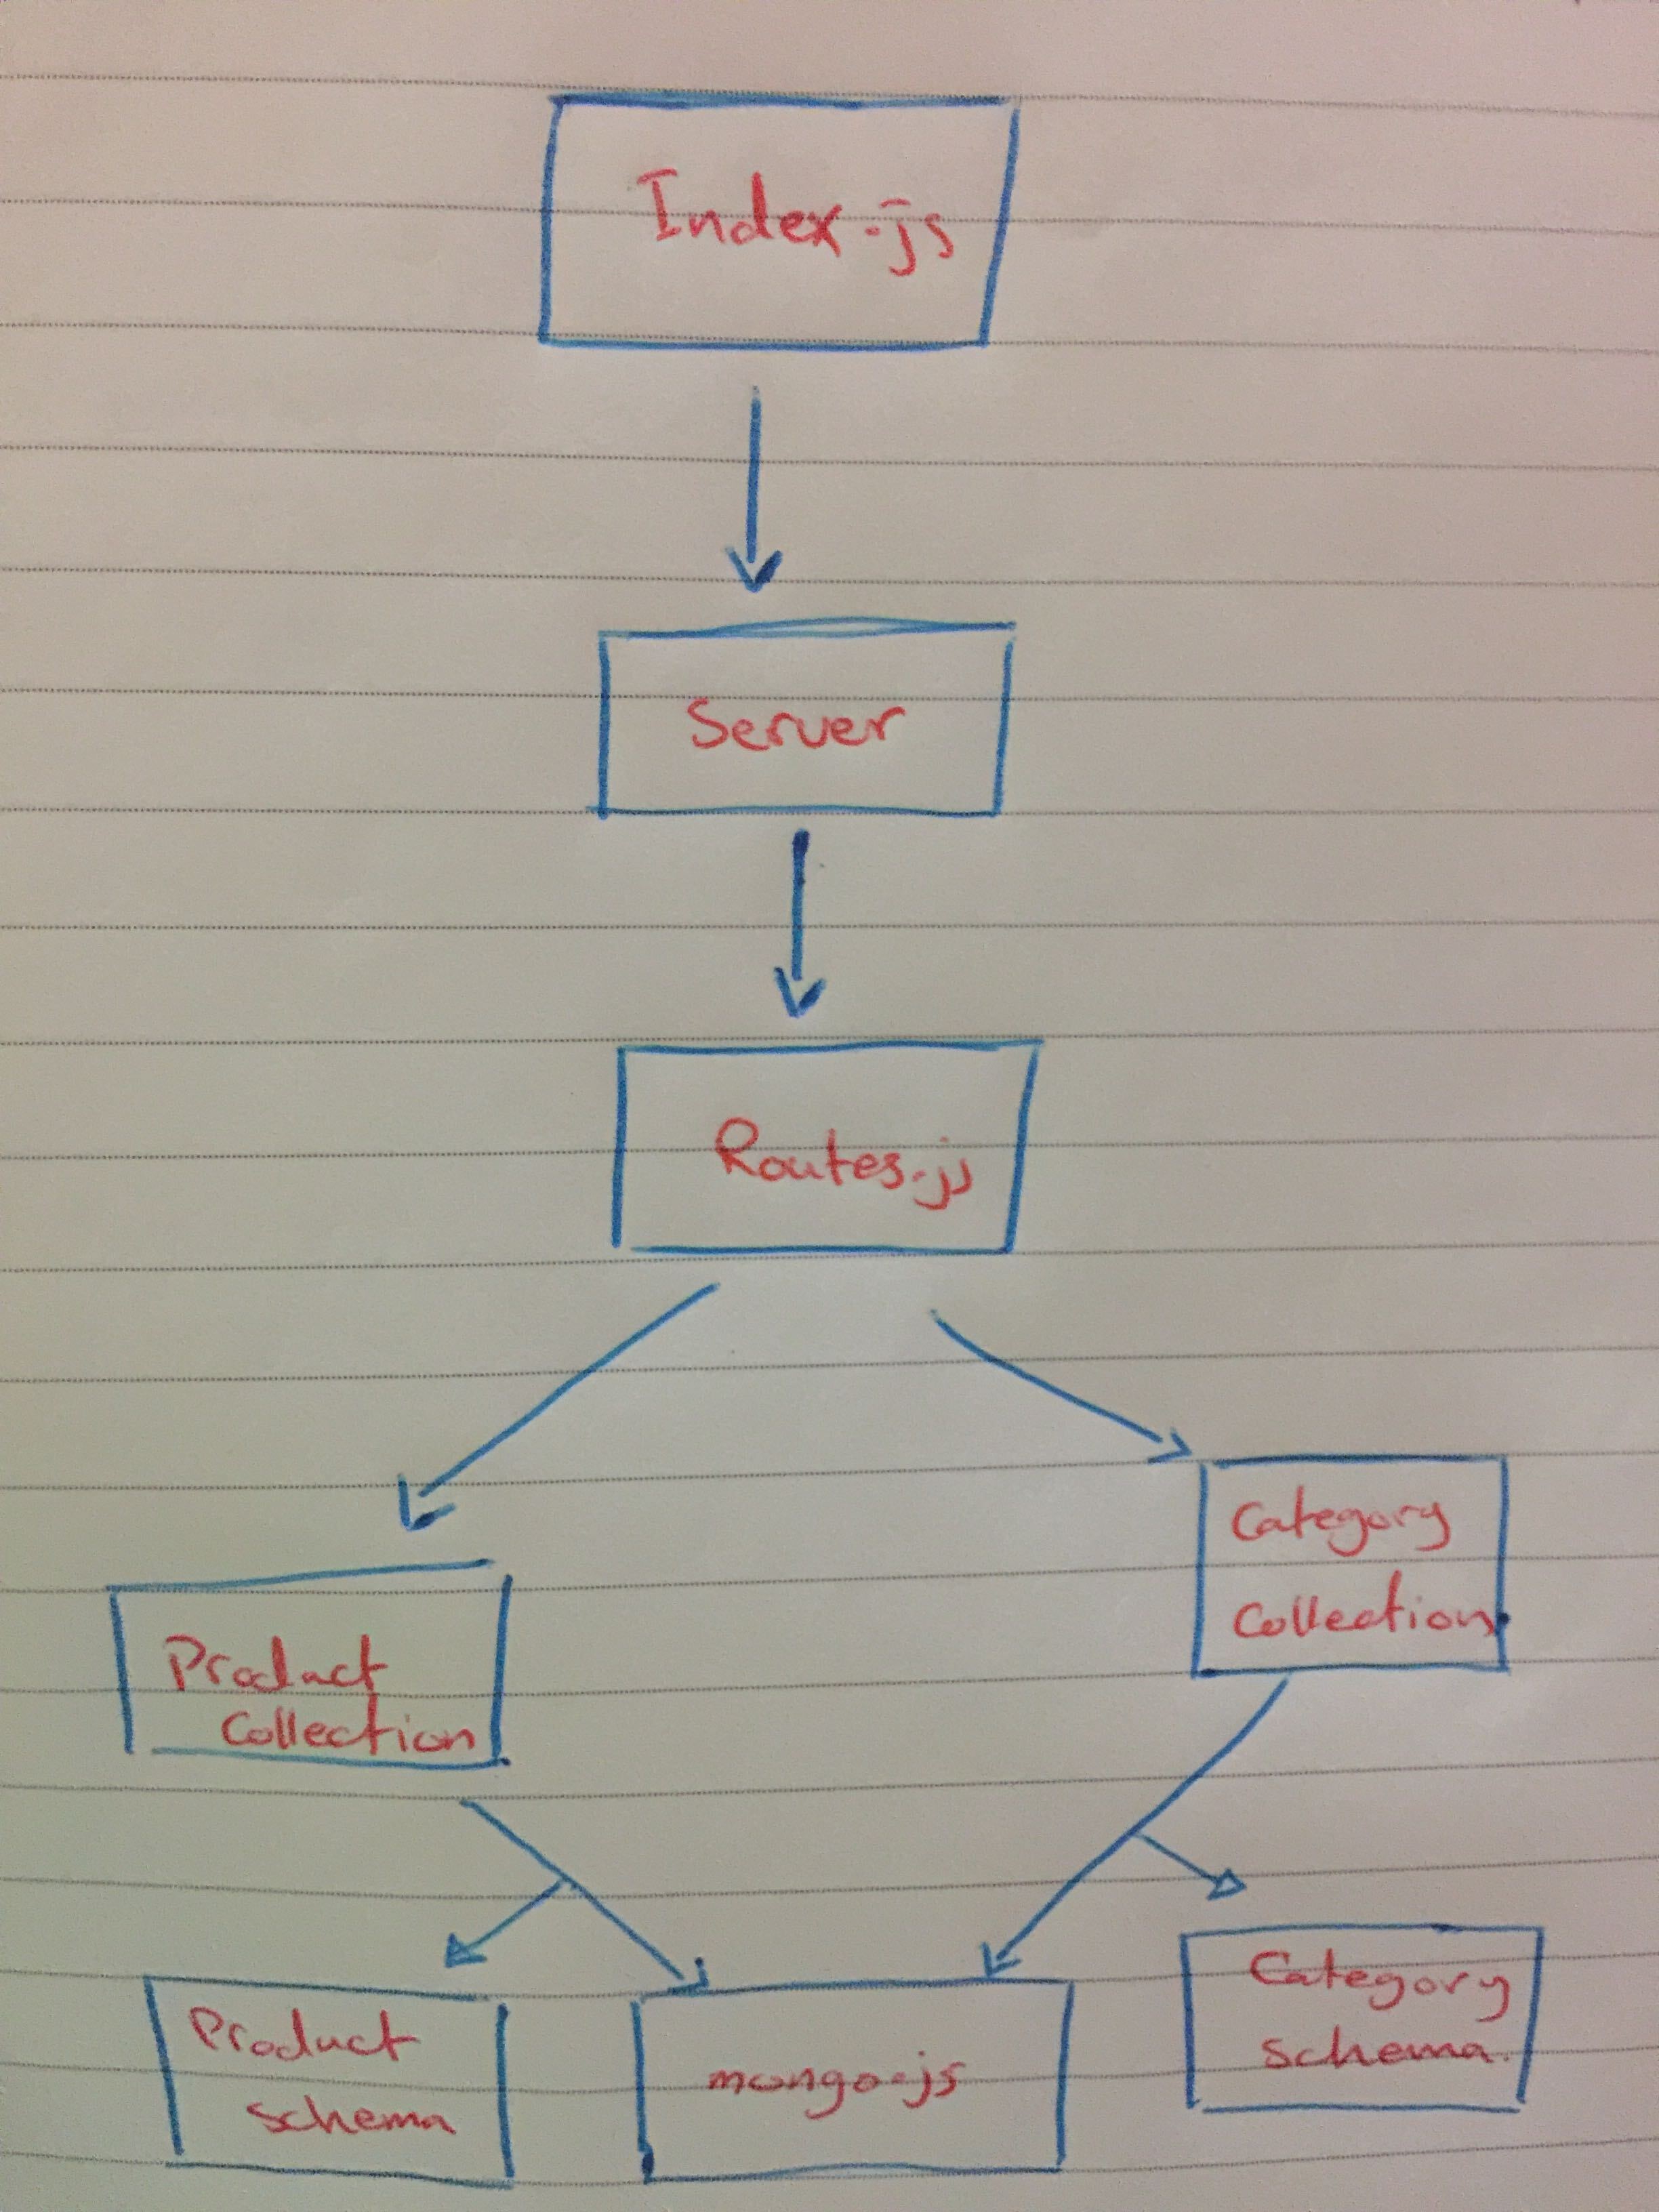 Index.js
Server
Routes.js
Category
Collection
Product
Collection
Product
schema
mongo.js
Category
schema.